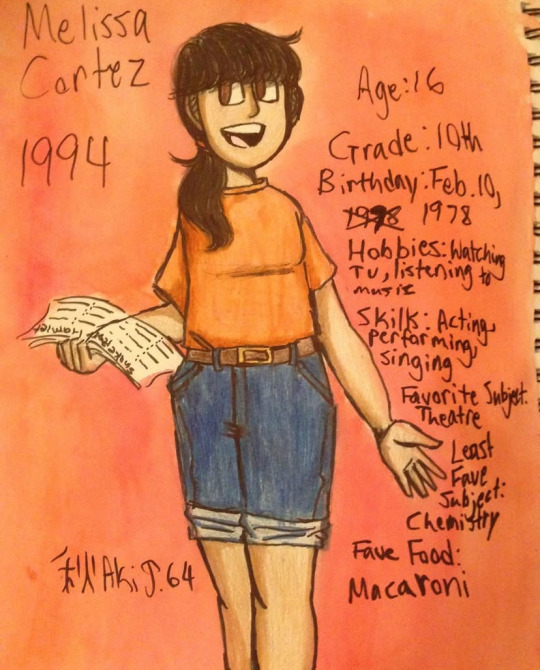 Melissa
Cortez
1994
Age:16
Grade: 10th
Birthday: Feb. 10,
1978
Hobbies: Watching
TV, listening to
music
Skills: Acting,
performing,
singing
Favorite Subject:
Theatre
Least
Fave
Subject:
Chemistry
Fave Food:
Macaroni
Hamlet
秋 Aki J. 64